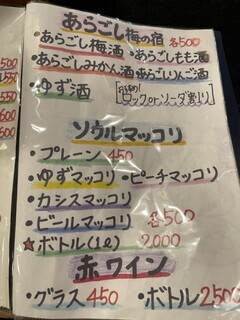 あらごし梅の宿 各500
・あらごし梅酒 ・あらごしもも酒
・あらごしみかん酒 あらごしりんご酒
・ゆず酒
ロックorソーダ割り
ソウルマッコリ
・プレーン 450
・ゆずマッコリ ・ピーチマッコリ
・カシスマッコリ
・ビールマッコリ 各500
☆ボトル(1ℓ) 2,000
赤ワイン
・グラス 450 ・ボトル 2500
500
500
550
600